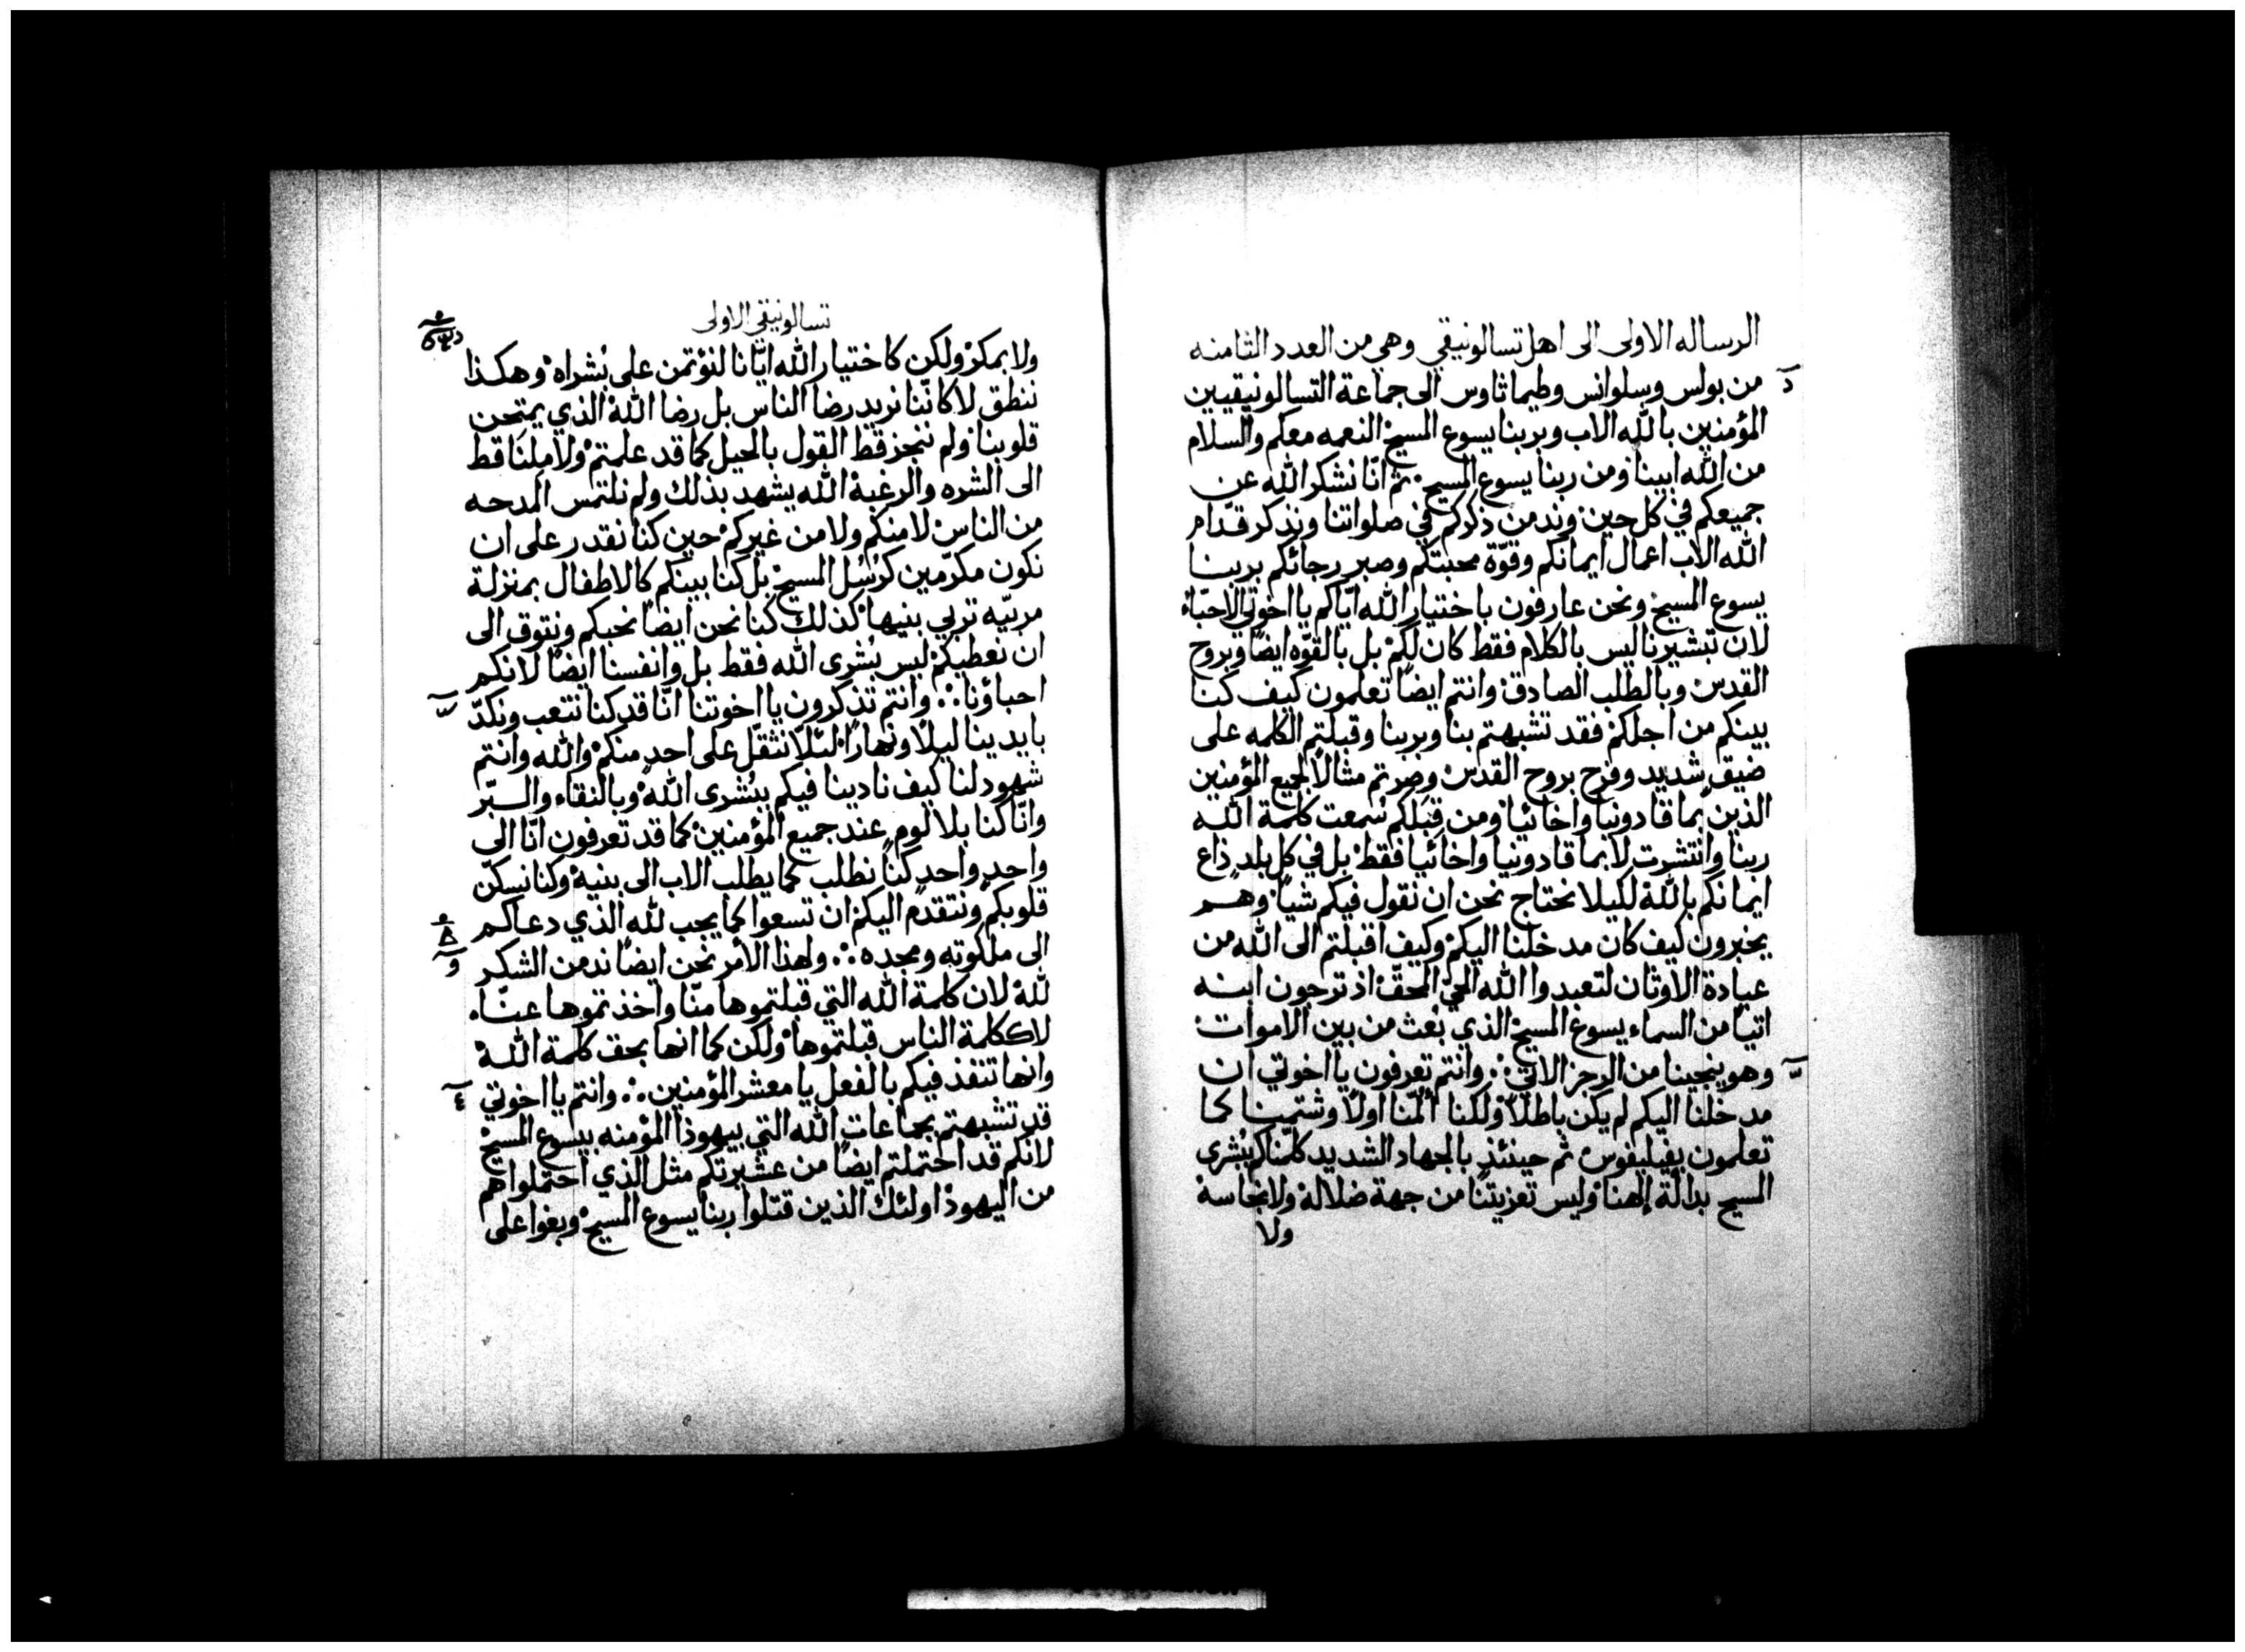 الرساله الاولى الى اهل تسالونيقي وهي من العدد الثامنه
من بولس وسلوانس وطيماثاوس الى جماعة التسالونيقيين
المؤمنين بالله الاب وبربنا يسوع المسيح النعمه معكم والسلام
من الله ابينا ومن ربنا يسوع المسيح ثم انّا نشكر الله عن
جميعكم في كل حين وندمن ذكركم في صلواتنا ونذكر قدّام
الله الاب اعمال ايمانكم وقوّة محبتكم وصبر رجائكم بربنا
يسوع المسيح ونحن عارفون باختيار الله ايّاكم يا اخوتي الاحبّاء
لان تبشيرنا ليس بالكلام فقط كان لكم بل بالقوّه ايضاً وبروح
القدس وبالطلب الصادق وانتم ايضاً تعلمون كيف كنا
بينكم من اجلكم فقد تشبهتم بنا وبربنا وقبلتم الكلمه على
ضيق شديد وفرح بروح القدس وصرتم مثالاً لجميع المؤمنين
الذين بماقادونيا واخائيا ومن قبلكم سُمعت كلمة الله
ربنا وانتشرت لا بماقادونيا واخائيا فقط بل في كل بلد ذاع
ايمانكم بالله لكيلا نحتاج نحن ان نقول فيكم شياً وهم
يخبرون كيف كان مدخلنا اليكم وكيف اقبلتم الى الله من
عبادة الاوثان لتعبدوا الله الحيّ المحقّ اذ ترجون ابنه
اتياً من السماء يسوع المسيح الذي بُعث من بين الاموات
وهو ينجينا من الرجز الاتي ∴ وانتم تعرفون يا اخوتي ان
مدخلنا اليكم لم يكن باطلاً ولكنا أُلمنا اولاً وشتمنا كما
تعلمون بفيليفوس ثم حينئذٍ بالجهاد الشديد كلمناكم بُشرى
المسيح بدالّة إلهنا وليس تعزيتنا من جهة ضلالة ولا نجاسة
ولا
تسالونيقي الاولى
ولا بمكر ولكن كاختيار الله ايّانا لنؤتمن على بُشراه وهكذا
ننطق لا كاننا نريد رضا الناس بل رضا الله الذي يمتحن
قلوبنا ولم ننجز قط القول بالحيل كما قد علمتم ولا مِلنا قط
الى الشره والرغبة الله يشهد بذلك ولم نلتمس المدحه
من الناس لا منكم ولا من غيركم حين كنا نقدر على ان
نكون مكرّمين كرُسُل المسيح بل كنا بينكم كالاطفال بمنزلة
مربيّه تربي بنيها كذلك كنا نحن ايضاً نحبكم ونتوق الى
ان نعطيكم ليس بُشرى الله فقط بل وانفسنا ايضاً لانكم
احباؤنا ∴ وانتم تذكرون يا اخوتنا انّا قد كنا نتعب ونكدّ
بايدينا ليلاً ونهاراً لئلّا نثقّل على احدٍ منكم والله وانتم
شهود لنا كيف نادينا فيكم ببُشرى الله وبالنقاء والبّر
وانّا كنا بلا لوم عند جميع المؤمنين كما قد تعرفون انّا الى
واحدٍ واحدٍ كنّا نطلب كما يطلب الاب الى بنيه وكنا نسكّن
قلوبكم ونتقدّم اليكم ان تسعوا كما يجب لله الذي دعاكم
الى ملكوته ومجده ∴ ولهذا الامر نحن ايضاً ندمن الشكر
لله لان كلمة الله التي قبلتموها منّا واخذتموها عنّا
لا ككلمة الناس قبلتموها ولكن كما انها بحق كلمة الله
وانها تنفذ فيكم بالفعل يا معشر المؤمنين ∴ وانتم يا اخوتي
قد تشبهتم بجماعات الله التي بيهوذا المؤمنه بيسوع المسيح
لانكم قد احتملتم ايضاً من عشيرتكم مثل الذي احتملوا هم
من اليهوذ اولئك الذين قتلوا ربنا يسوع المسيح وبغوا على